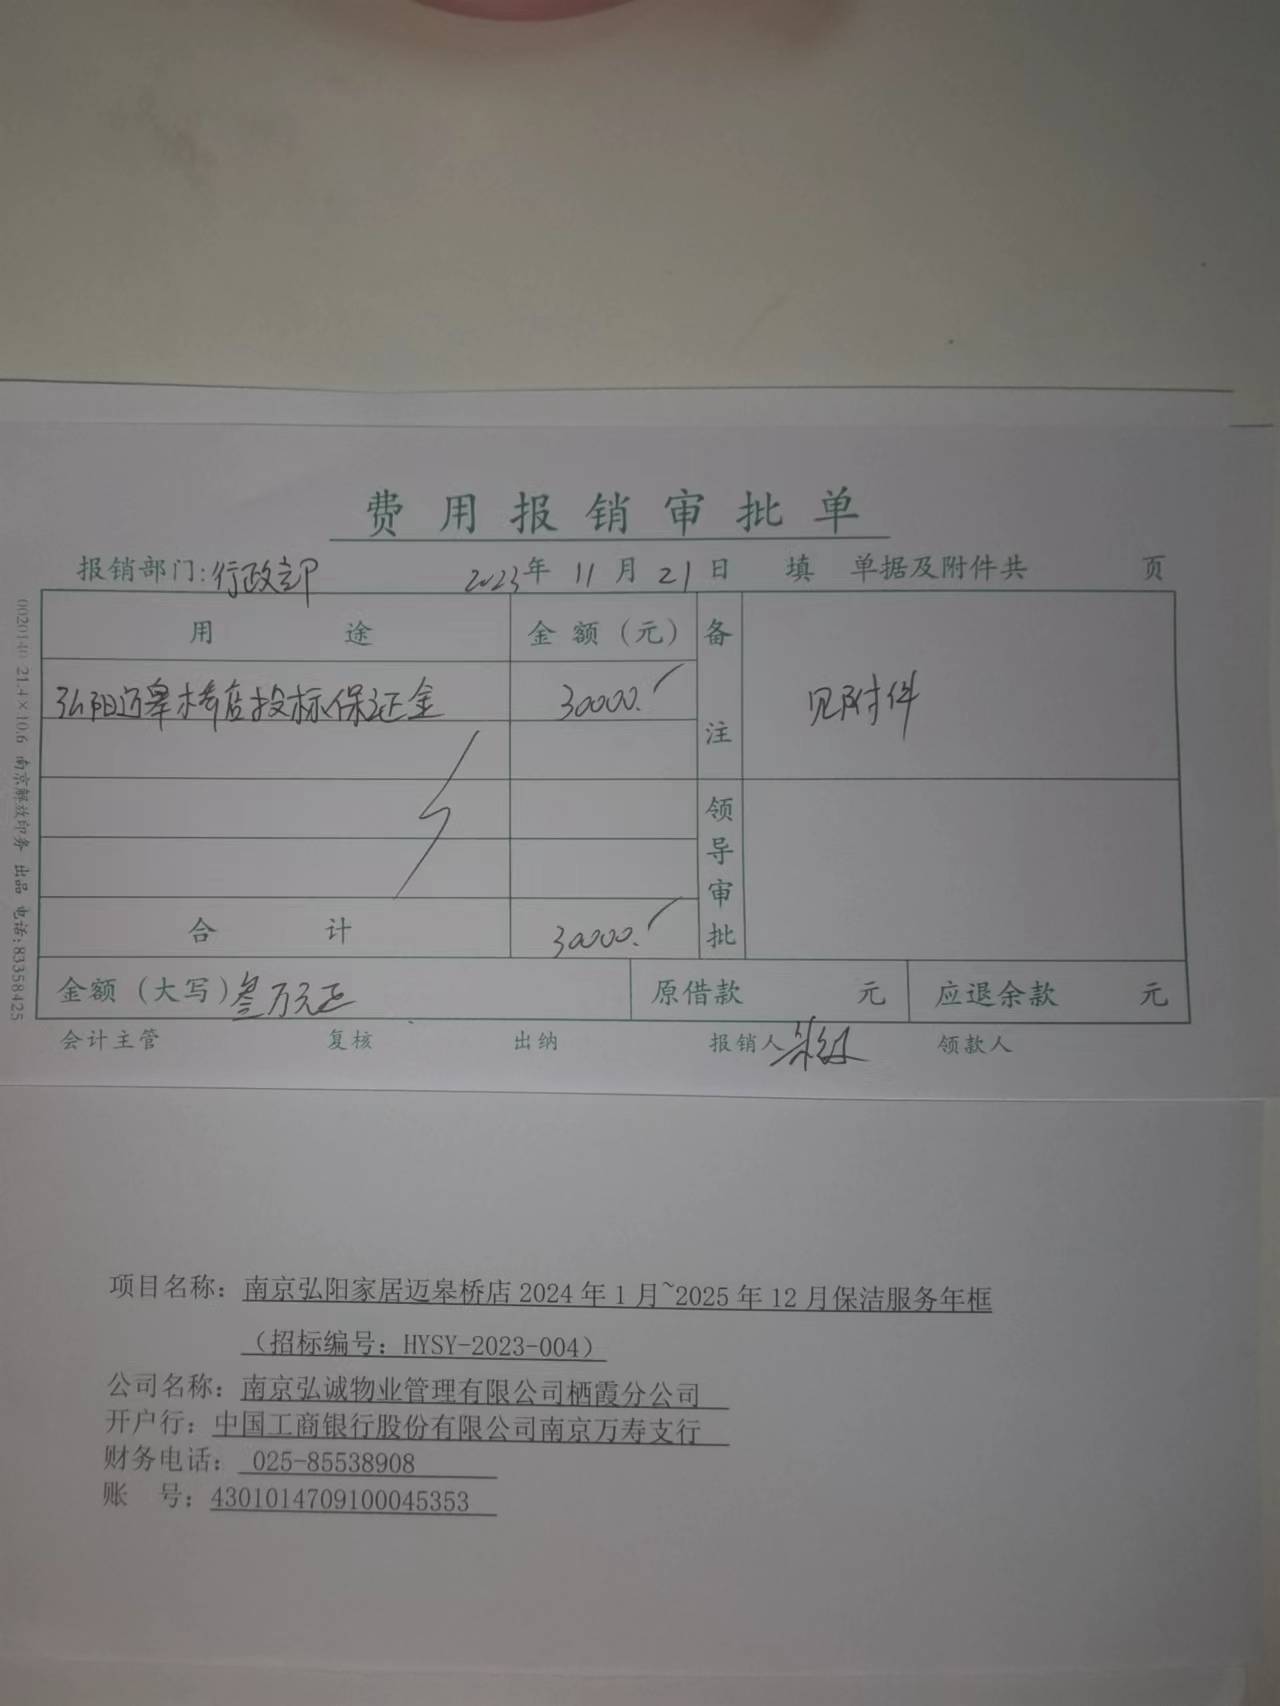 费用报销审批单
报销部门:行政部 2023年 11月 21日 填 单据及附件共 页
用途 金额(元) 备注
弘阳迈皋桥店投标保证金 30000. 见附件
领导审批
合计 30000.
金额(大写)叁万元正 原借款 元 应退余款 元
会计主管 复核 出纳 报销人 领款人
0020140 21.4×10.6 南京解放印务 出品 电话:83358425
项目名称：南京弘阳家居迈皋桥店2024年1月~2025年12月保洁服务年框
（招标编号：HYSY-2023-004）
公司名称：南京弘诚物业管理有限公司栖霞分公司
开户行：中国工商银行股份有限公司南京万寿支行
财务电话： 025-85538908
账 号：4301014709100045353